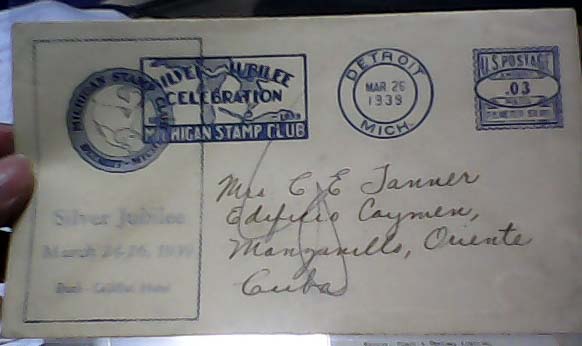 MICHIGAN STAMP CLUB
DETROIT - MICH.
SILVER JUBILEE
CELEBRATION
1939
MICHIGAN STAMP CLUB
DETROIT
MAR 26
1939
MICH.
U.S. POSTAGE
.03
Silver Jubilee
March 24-26, 1939
Hotel
Mrs C E Tanner
Edificio Caymen,
Manzanillo, Oriente
Cuba